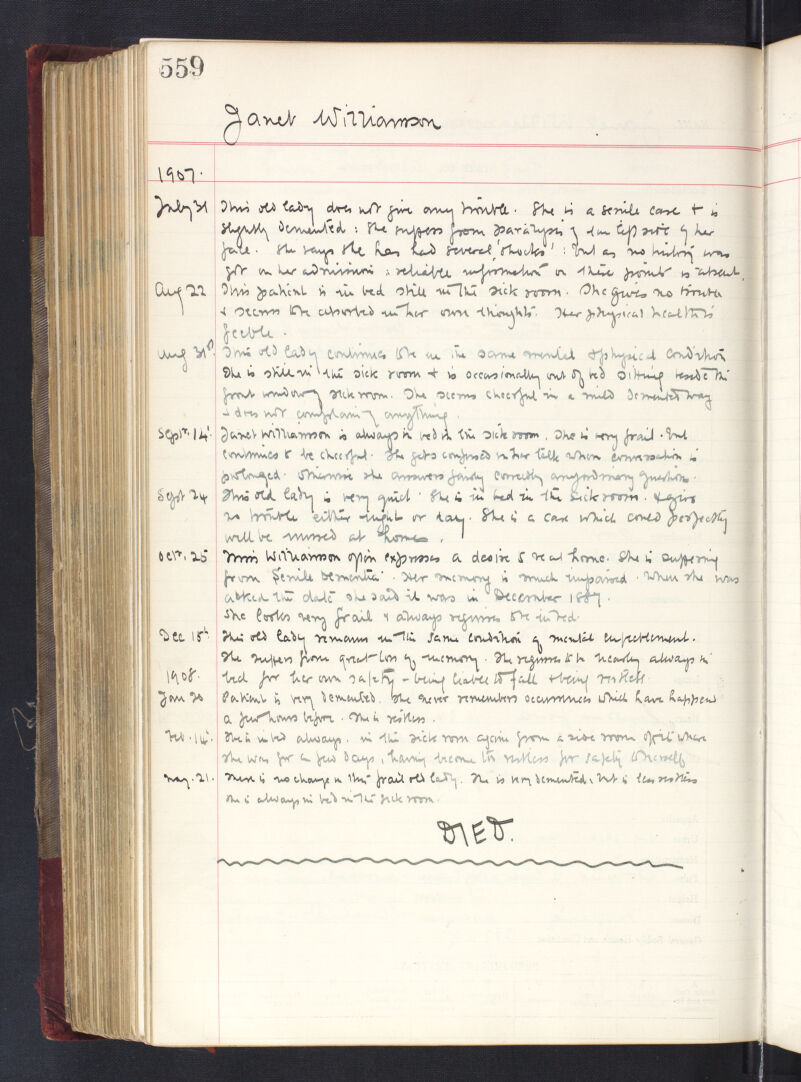 559
Janet Williamson
1907.
July 31 This old lady does not give any trouble. She is a senile case & is
slightly demented: she suffers from paralysis of the left side of her
face. She says she has had several 'shocks': but as no history was
got on her admission: reliable information on these points is absent.
Aug 22 This patient is in bed still in the sick room. She gives no trouble
& seems to be absorbed in her own thoughts. Her physical health is
feeble.
Aug 31st This old lady continues to be in the same mental & physical condition
She is still in the sick room & is occasionally out of bed sitting beside the
front window of sick room. She seems cheerful in a mild demented way
& does not complain of anything.
Sept. 14. Janet Williamson is always in bed in the sick room. She is very frail. But
continues to be cheerful. She gets confused in her talk when conversation is
prolonged. Otherwise she answers fairly correctly any ordinary question.
Sept 24 This old lady is very quiet. She is in bed in the sick room. & gives
no trouble either night or day. She is a case which could perfectly
well be nursed at home.
Oct. 25 Miss Williamson often expresses a desire to be at home. She is suffering
from Senile Dementia. Her memory is much impaired. When she was
asked the date she said it was in December 1887.
She looks very frail & always requires to be in bed.
Dec 15th This old lady remains in the same condition of mental enfeeblement.
She suffers from great loss of memory. She requires to be nearly always in
bed for her own safety - being liable to fall & being restless.
1908.
Jan 20 Patient is very demented. She never remembers occurrences which have happened
a few hours before. She is restless.
Feb. 14. She is in bed always. in the sick room again from a side room off it where
she was for a few days, having become too restless for safety to herself
May. 21. There is no change in this frail old lady. She is very demented, but is less restless
She is always in bed in the sick room.
DIED.